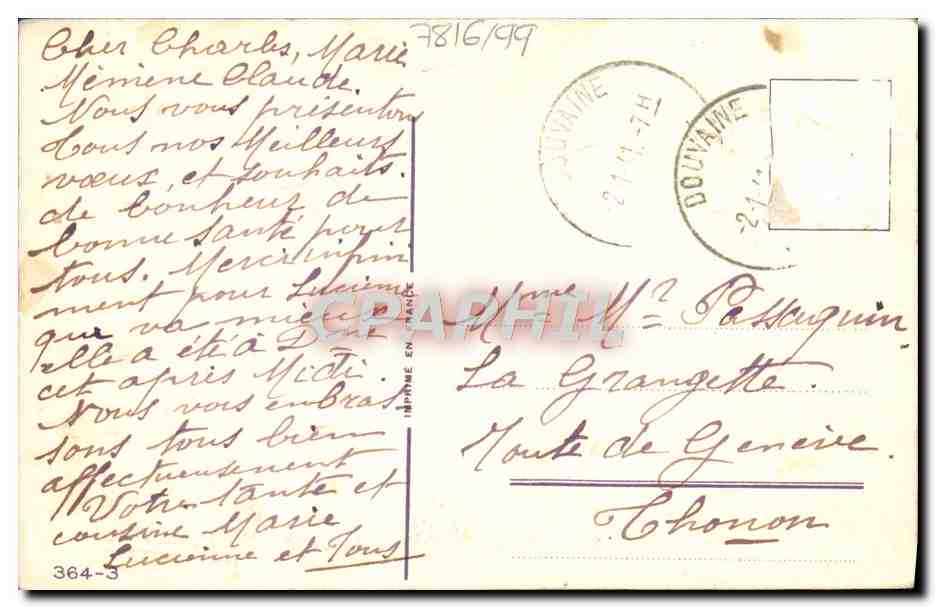 7816/99
Cher Charles, Marie
Mémène Claude.
Nous vous présentons
tous nos Meilleurs
vœux, et souhaits.
de bonheur de
bonne santé pour
tous. Merci infini
ment pour Lucienne
qui va mieux
elle a été à
cet après Midi.
Nous vous enbras
sons tous bien
affectueusement
Votre tante et
cousine Marie
Lucienne et Tous
364-3
IMPRIMÉ EN FRANCE
DOUVAINE
-2-1-41.-7H
DOUVAINE
-2-1-4
CPAPHIL
Mme Mr Passaquin
La Grangette.
Route de Genève.
Thonon